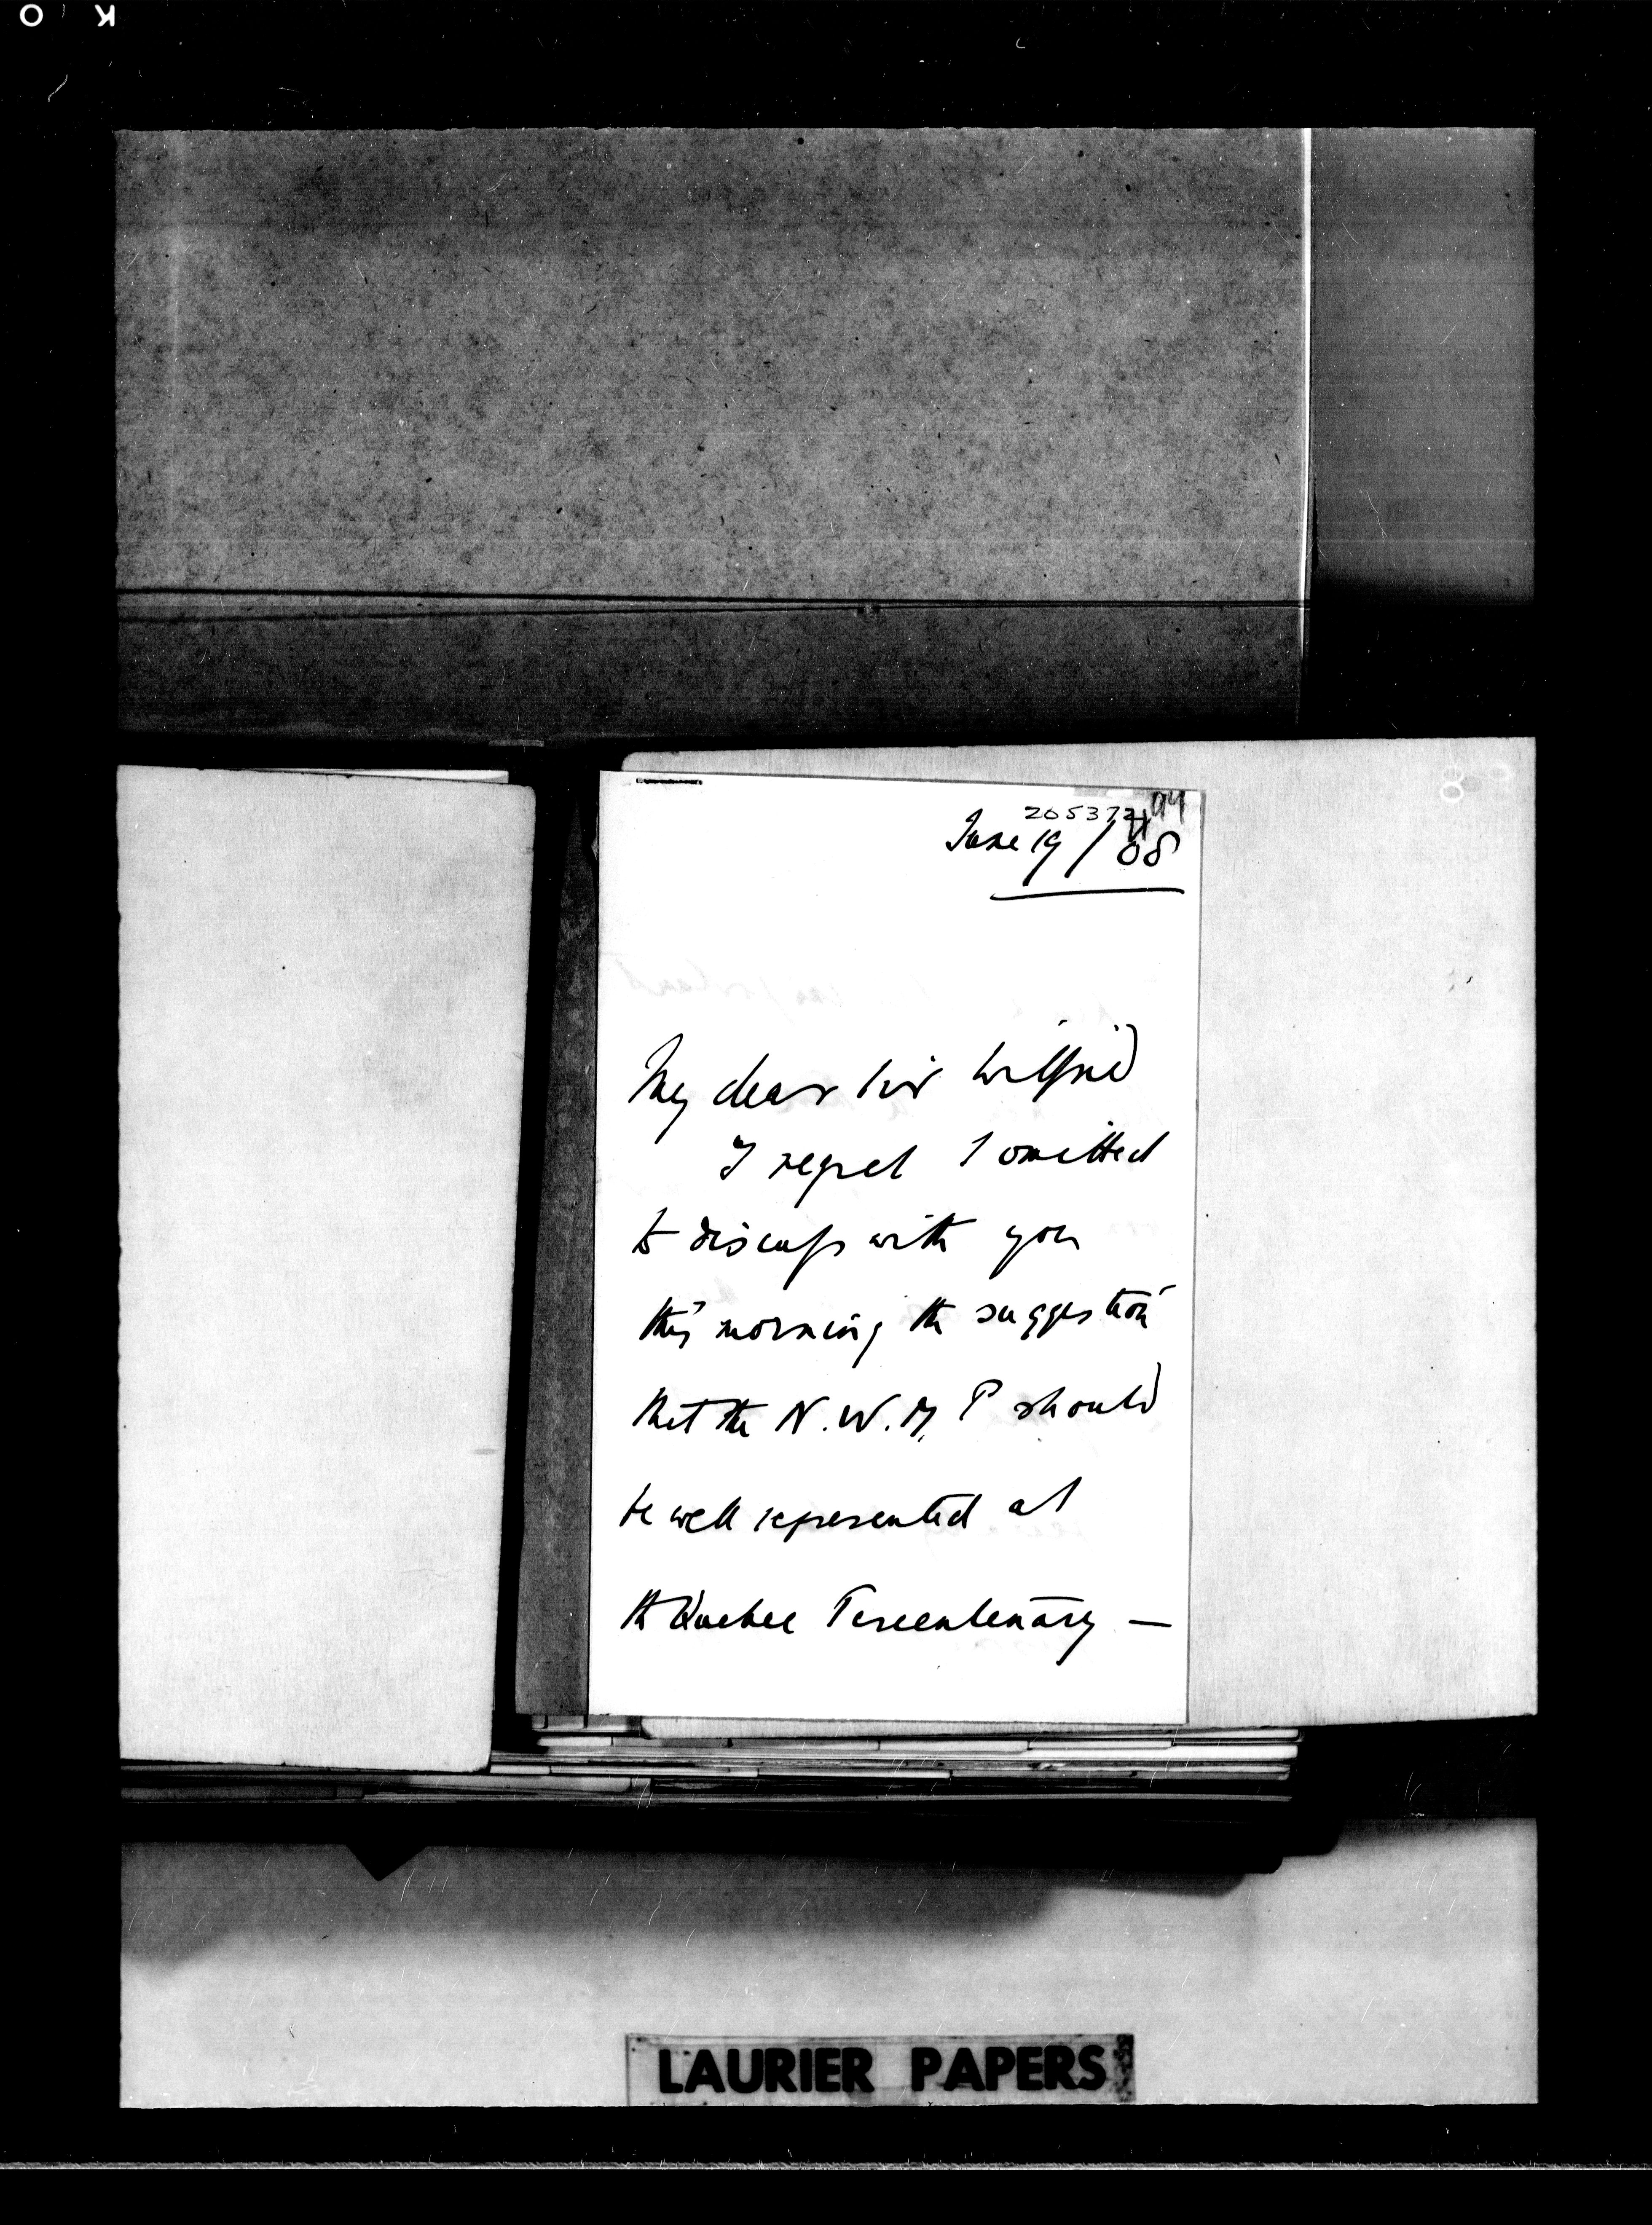 K O
205372
June 19/08
My dear Sir Wilfrid
I regret I omitted
to discuss with you
this morning the suggestion
that the N.W.M.P should
be well represented at
the Quebec Tercentenary —
LAURIER PAPERS